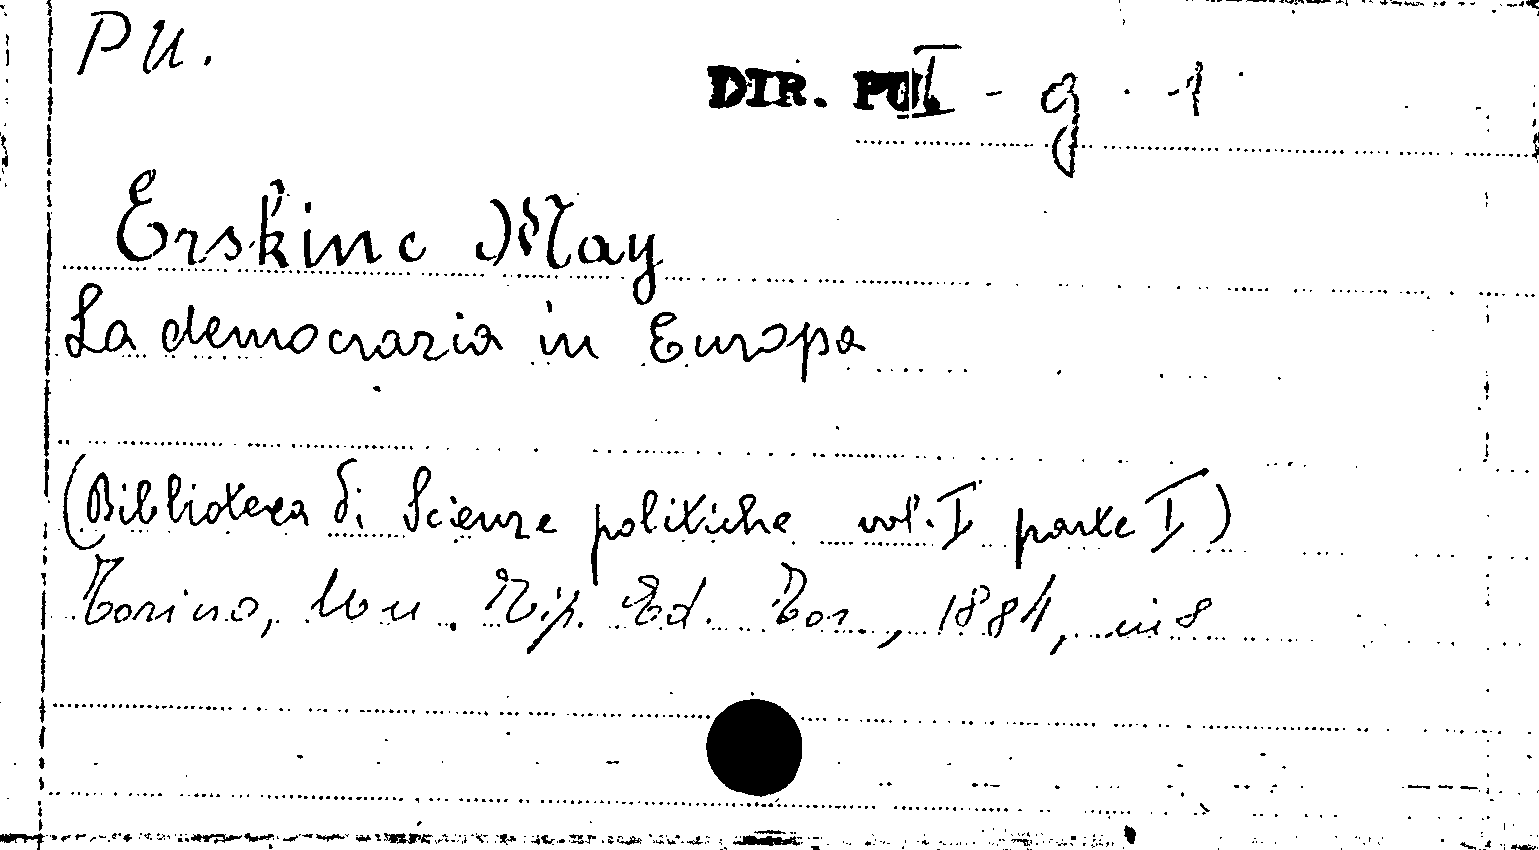 PU.
DIR. PU. I - g . 1
Erskine May
La democrazia in Europa
(Biblioteca di Scienze politiche vol. I parte I)
Torino, Un. Tip. Ed. Tor., 1884, in 8